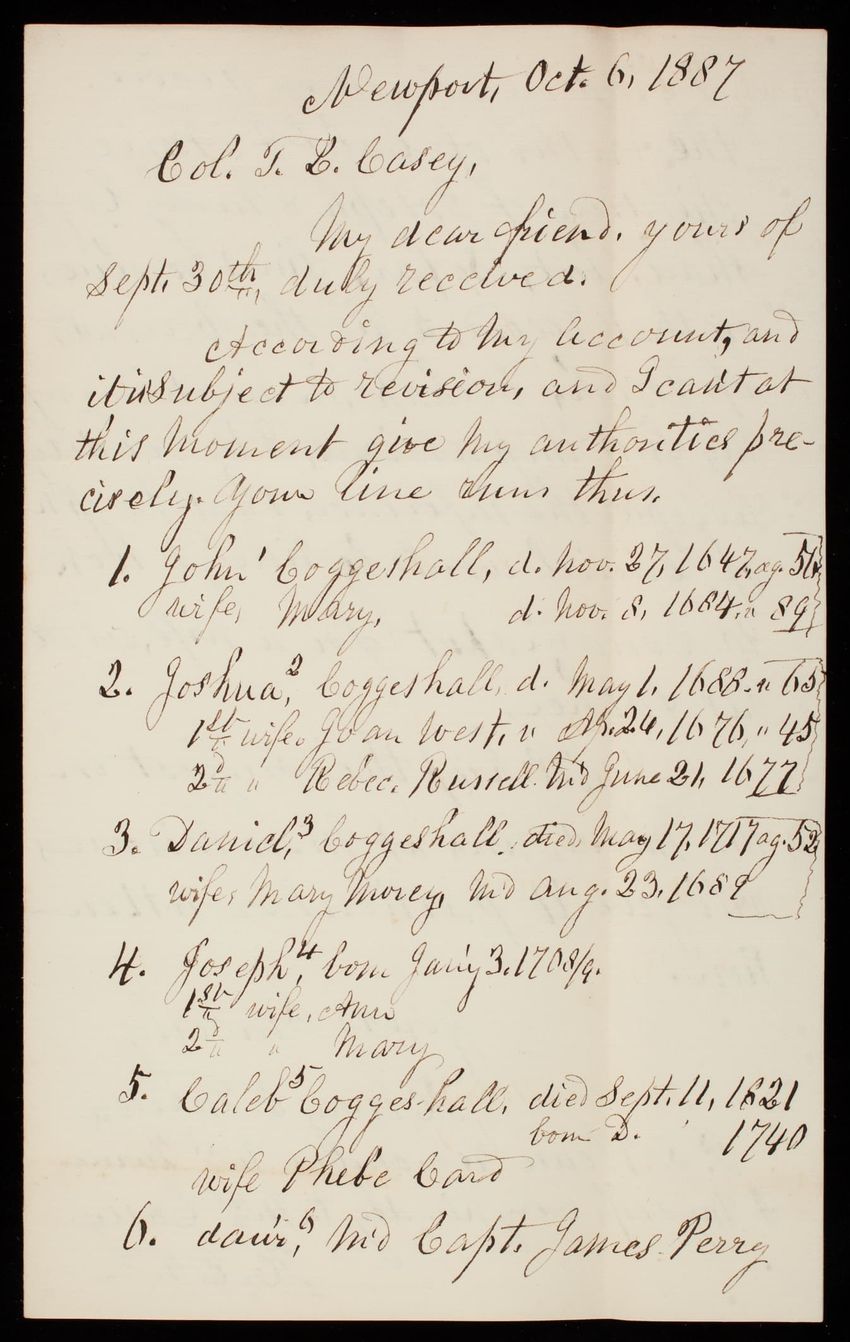 Newport, Oct. 6, 1887
Col. T. L. Casey,
My dear friend. yours of
Sept. 30th, duly received.
According to my account, and
it is subject to revision, and I can't at
this moment give my authorities pre-
cisely. Your line runs thus.
1. John¹ Coggeshall, d. Nov. 27, 1647, ag. 56
wife, Mary, d. Nov. 8, 1684. " 89
2. Joshua,² Coggeshall, d. May 1, 1688. " 65
1st wife. Joan West, " Ap. 24, 1676, " 45
2d " Rebec. Russell. m'd June 21, 1677
3. Daniel,³ Coggeshall, died May 17, 1717 ag. 52
wife, Mary Mowry, m'd Aug. 23, 1689
4. Joseph,⁴ born Jan'y 3. 1708/9.
1st wife, Ann
2d " Mary
5. Caleb⁵ Coggeshall, died Sept. 11, 1821
born D. 1740
wife Phebe Card
6. dau'r,⁶ m'd Capt. James Perry